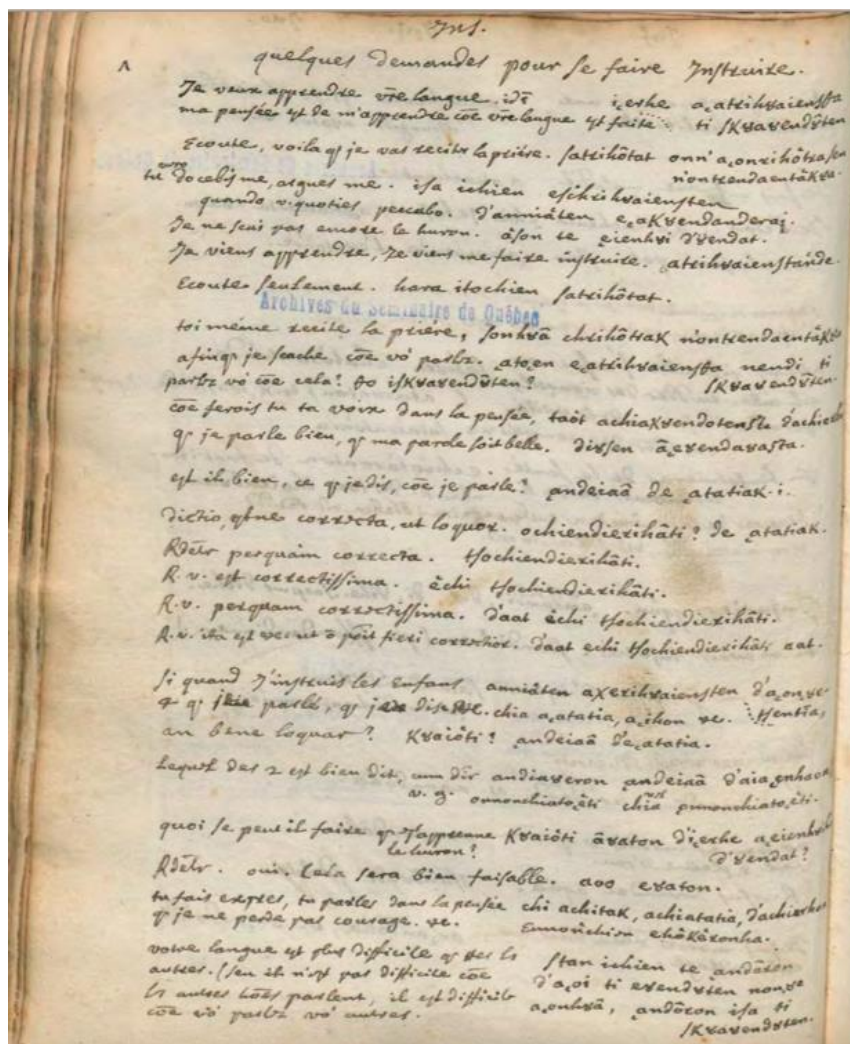 Ins.
quelques demandes pour se faire Instruire.
Je veux apprendre vre langue. id i,erhe a,atrihȣaiensta
ma pensée est de m'apprendre cõe vre langue est faite ti skȣaȣendȣten
Ecoute, voila q; je vas reciter la priére. satrihôtat onn'a,onrihôtrasen
n'ontrendaentäkȣa.
tu docebis me, argues me. isa ichien esihrihȣaiensten
quando v. quoties peccabo. d'anniâten e,aKȣendanderaj.
Je ne scais pas encore le huron. ason te eienhȣi d'ȣendat.
Je viens apprendre, Je viens me faire instruire. atrihȣaienstande.
Ecoute seulement. hara itochien satrihôtat.
Archives du Séminaire de Québec
toi méme recite la priére, sonhȣâ chrihôtrak n'ontrendaentäkȣa
afinq; je scache cõe vo' parlez. ato,en e,atrihȣaiensta nendi ti
parlez vo' cõe cela? to iskȣaȣendȣten? skȣaȣendȣten.
cõe ferois tu ta voix dans la pensée, taôt achiaKȣendotenste d'achier
q; je parle bien, q; ma parole soit belle. diȣsen a,eȣendaȣasta.
est il bien, ce q; je dis, cõe je parle? andeiaâ de ,atatiak. i.
dictio, estne correcta, ut loquor. ochiendierihâti? de ,atatiak.
Rdetr perquàm correcta. tsochiendierihâti.
R. v. est correctissima. échi tsochiendierihâti.
R. v. perquam correctissima. d'aat échi tsochiendierihâti.
R. v. ita est vec ut õ poit fieri correctior. daat echi tsochiendierihâti aat.
si quand J'instruis les enfans anniâten aKerihȣaiensten d'a,on ȣe
& q; je parle, q; je dise &c. chia a,atatia, a,ihon ȣe. tsentia,
an bene loquar? Kȣaiôti? andeiaâ de,atatia.
Lequel des 2 est bien dit, cum dir andiaȣeron andeiaâ d'aia,enhaon
v. g. onnonchiato,eti chia onnonchiato,êti.
quoi se peut il faire q; J'apprenne Kȣaiôti âȣaton d'i,erhe a,eienhȣi
le huron? d'ȣendat?
Rdetr. oui. Cela sera bien faisable. aoo eȣaton.
tu fais expres, tu parles dans la pensée chi achitak, achiatatia, d'achierhe
q; je ne perde pas courage. &c. Ennonchien ehôkêronha.
votre langue est plus difficile q; les stan ichien te andôron
autres. (seu il n'est pas difficile cõe d'a,oi ti eȣendȣten nonȣe
les autres hões parlent, il est difficile a,onhȣâ, andôron isa ti
cõe vo' parlez vo' autres. skȣaȣendȣten.